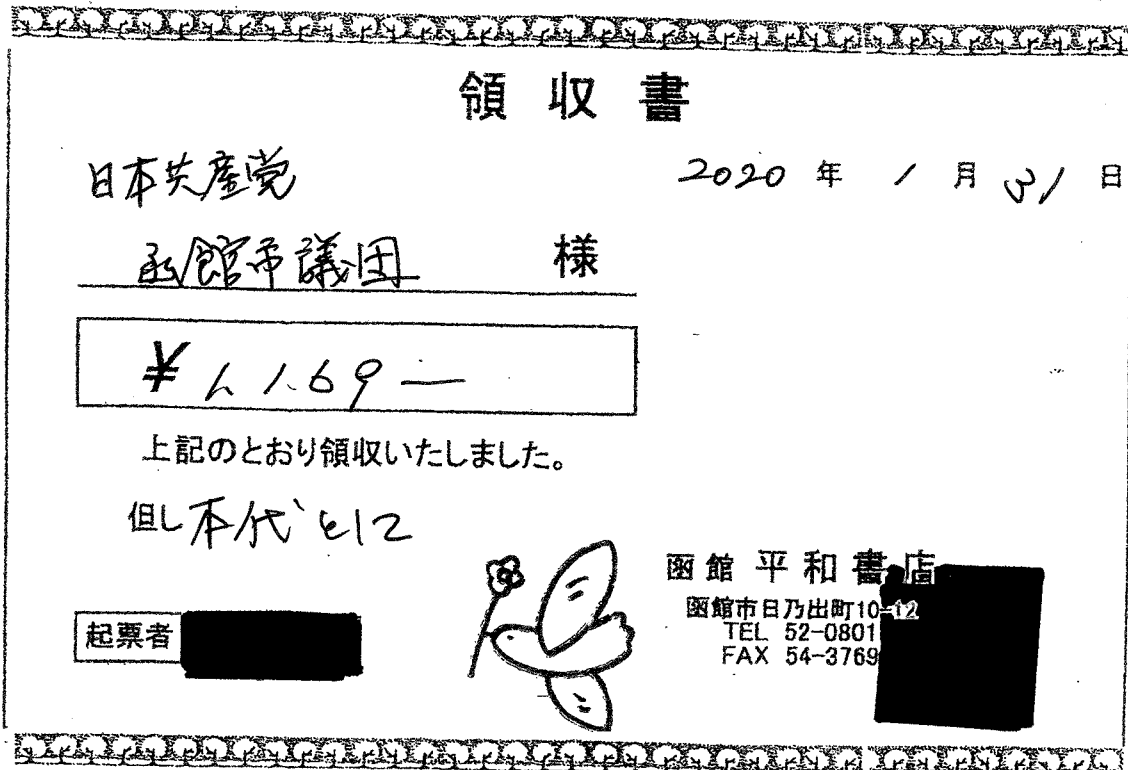 領収書
日本共産党
2020年1月31日
函館市議団 様
¥
上記のとおり領収いたしました。
但し本代として
函館 平和書店
函館市日乃出町10-12
TEL 52-0801
FAX 54-3769
起票者